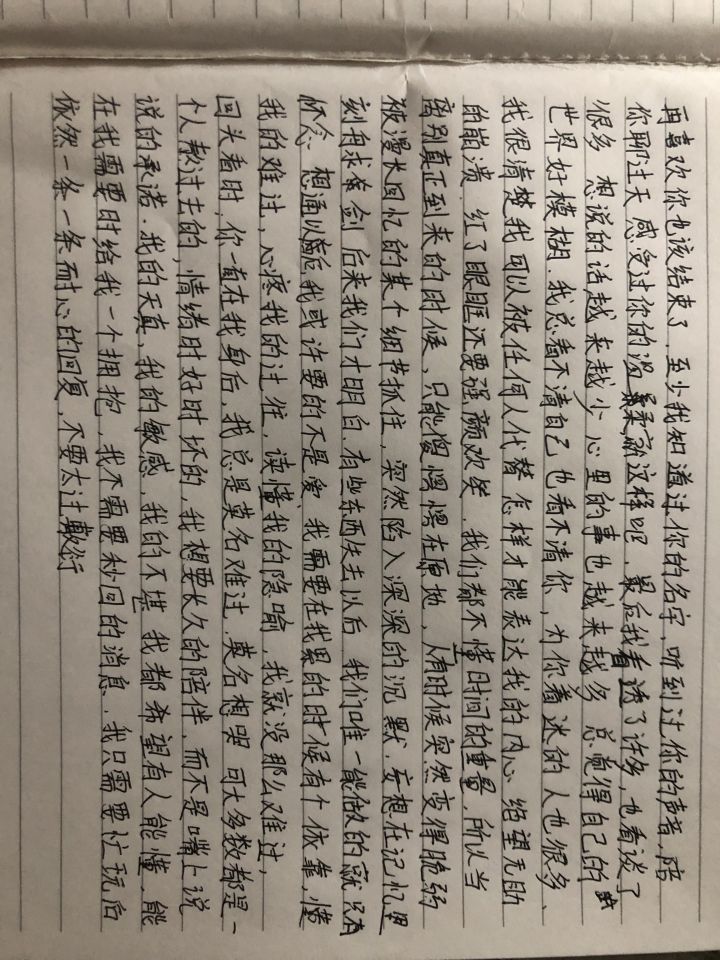 再喜欢你也该结束了，至少我知道过你的名字，听到过你的声音，陪
你聊过天 感受过你的温柔就这样吧，最后我看透了许多，也看谈了
很多 想说的话越来越少 心里的事也越来越多 总觉得自己的
世界好模糊．我总看不清自己 也看不清你，为你着迷的人也很多、
我很清楚我可以被任何人代替 怎样才能表达我的内心 绝望无助
的崩溃．红了眼眶还要强颜欢笑．我们都不懂时间的重量，所以当
离别真正到来的时候，只能愣愣在原地，有时候突然变得脆弱
被漫长回忆的某个细节抓住，突然陷入深深的沉默．妄想在记忆里
刻舟求剑 后来我们才明白．有些东西失去以后 我们唯一能做的就只有
怀念 想通以后我或许要的不是爱 我需要在我累的时候有个依靠，懂
我的难过，心疼我的过往，读懂我的隐喻，我就没那么难过，
回头看时，你一直在我身后，我总是莫名难过．莫名想哭 可大多数都是一
个人熬过去的，情绪时好时坏的，我想要长久的陪伴，而不是嘴上说
说的承诺．我的天真，我的敏感，我的不堪 我都希望有人能懂，能
在我需要时给我一个拥抱，我不需要秒回的消息．我只需要忙玩后
依然一条一条耐心的回复，不要太过敷衍